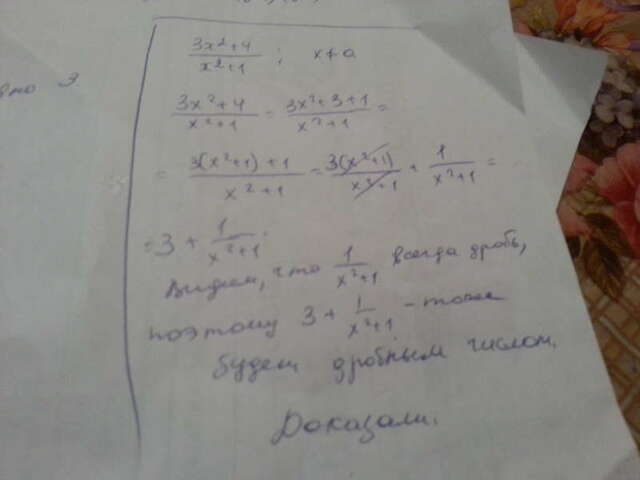 3x²+4/x²+1 ; x≠0
3x²+4/x²+1 = 3x²+3+1/x²+1 =
= 3(x²+1)+1/x²+1 = 3(x²+1)/x²+1 + 1/x²+1 =
= 3 + 1/x²+1.
Видим, что 1/x²+1 всегда дробь,
поэтому 3 + 1/x²+1 - тоже
будет дробным числом.
Доказали.